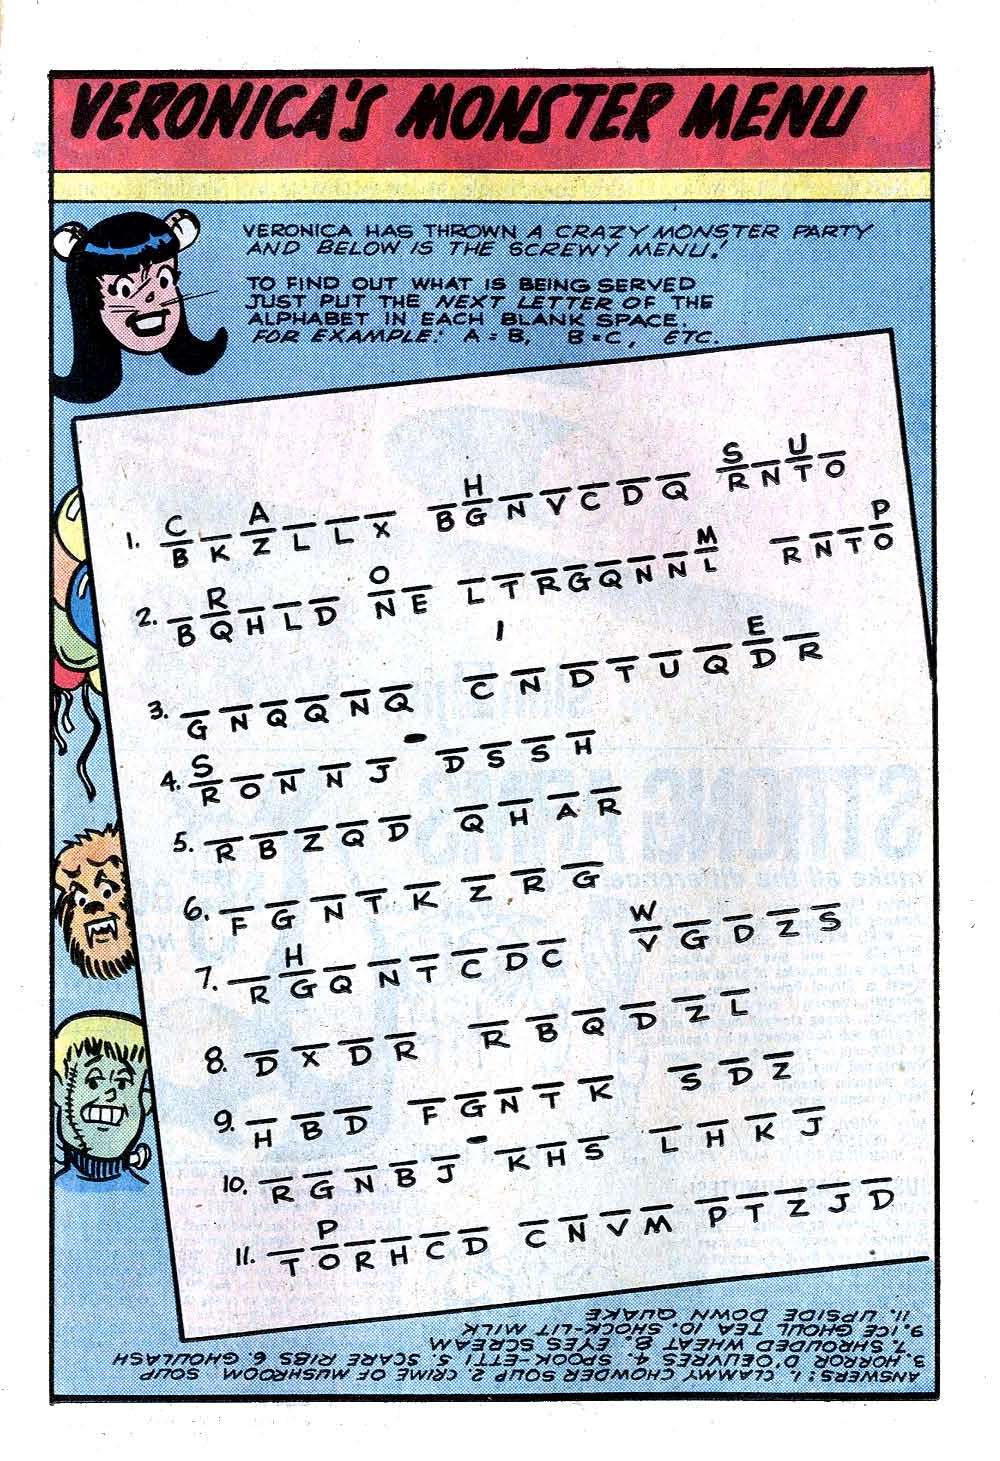 VERONICA'S MONSTER MENU
VERONICA HAS THROWN A CRAZY MONSTER PARTY
AND BELOW IS THE SCREWY MENU!
TO FIND OUT WHAT IS BEING SERVED
JUST PUT THE NEXT LETTER OF THE
ALPHABET IN EACH BLANK SPACE.
FOR EXAMPLE: A = B, B = C, ETC.
C A H S U
1. B K Z L L X B G N V C D Q R N T O
R O M P
2. B Q H L D N E L T R G Q N N L R N T O
E
3. G N Q Q N Q C ' N D T U Q D R
S
4. R O N N J - D S S H
5. R B Z Q D Q H A R
6. F G N T K Z R G
H W
7. R G Q N T C D C V G D Z S
8. D X D R R B Q D Z L
9. H B D F G N T K S D Z
10. R G N B J - K H S L H K J
P
11. T O R H C D C N V M P T Z J D
ANSWERS: 1. CLAMMY CHOWDER SOUP 2. CRIME OF MUSHROOM SOUP
3. HORROR D'OEUVRES 4. SPOOK-ETTI 5. SCARE RIBS 6. GHOULASH
7. SHROUDED WHEAT 8. EYES SCREAM
9. ICE GHOUL TEA 10. SHOCK-LIT MILK
11. UPSIDE DOWN QUAKE